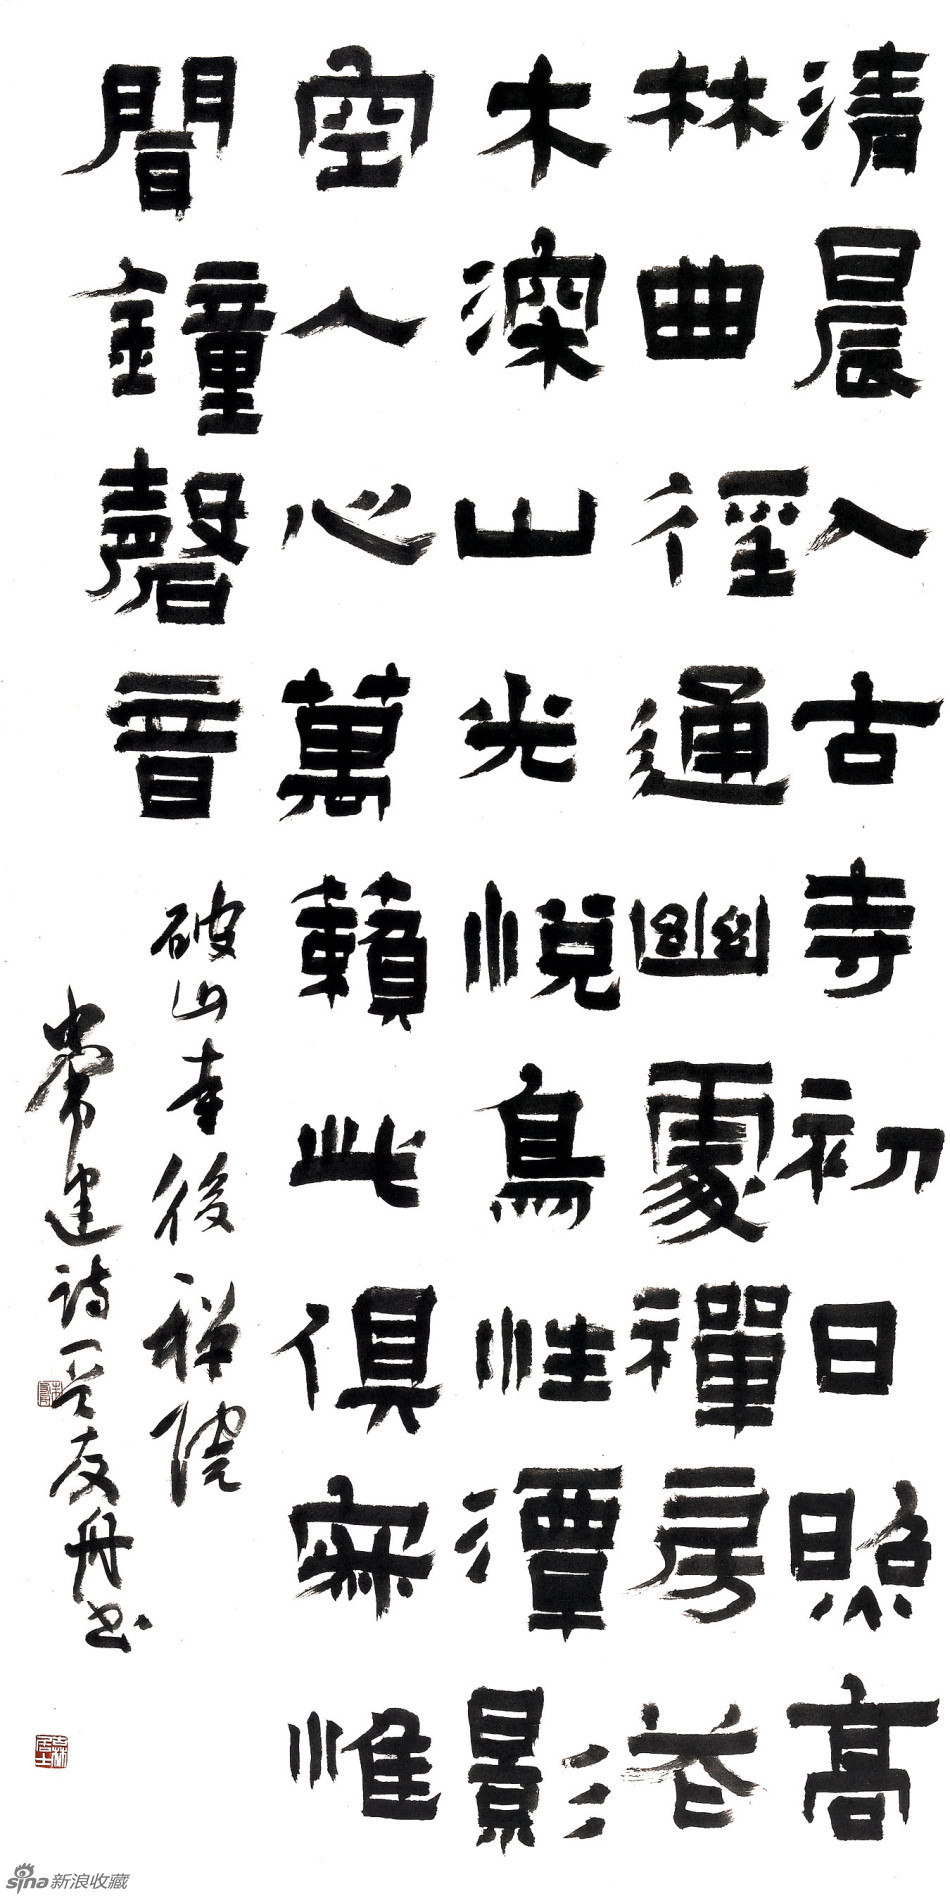 清晨入古寺初日照高
林曲徑通幽處禪房花
木深山光悅鳥性潭影
空人心萬籟此俱寂惟
聞鐘磬音
破山寺後禅院
常建詩友舟书
sina新浪收藏